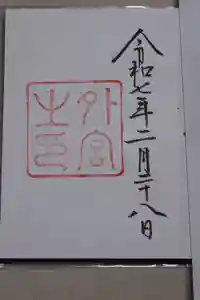 令和七年二月二十八日
外宮
之印